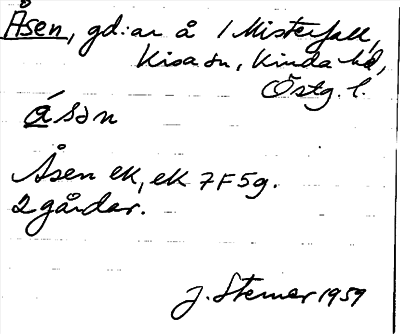 Åsen, gd:ar å 1 Misterfall,
Kisa sn, Kinda hd,
Östg. l.
ǻsən
Åsen ek, ek 7F5g.
2 gårdar.
J. Sterner 1959